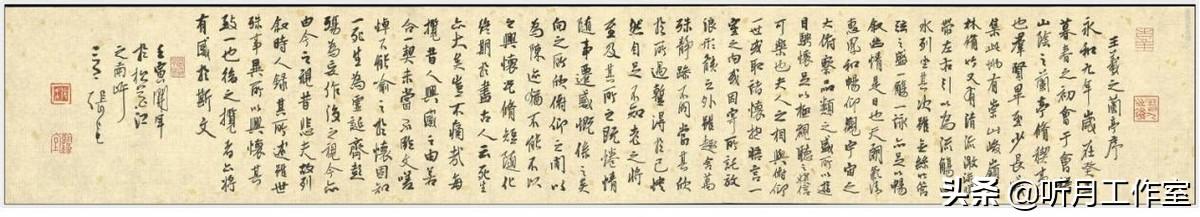 王羲之蘭亭序
永和九年歲在癸
暮春之初會于會
山陰之蘭亭脩稧
也羣賢畢至少長
集此地有崇山峻領
林脩竹又有清流激
帶左右引以為流觴
水列坐其次雖無絲竹管
弦之盛一觴一詠亦足以暢
叙幽情是日也天朗氣清
惠風和暢仰觀宇宙之
大俯察品類之盛所以遊
目騁懷足以極視聽娛信
可樂也夫人之相與俯仰
一世或取諸懷抱悟言一
室之內或因寄所託放
浪形骸之外雖趣舍萬
殊靜躁不同當其欣
於所遇蹔得於己怏
然自足不知老之將
至及其所之既惓情
隨事遷感慨係之矣
向之所欣俯仰之間以
為陳迹猶不能不以
之興懷況脩短隨化
終期於盡古人云死生
亦大矣豈不痛哉每
攬昔人興感之由若
合一契未嘗不臨文嗟
悼不能喻之於懷固知
一死生為虛誕齊彭
殤為妄作後之視今亦
由今之視昔悲夫故列
叙時人錄其所述雖世
殊事異所以興懷其
致一也後之攬者亦將
有感於斯文
壬寅開年
於松花江
之南岸
头条 @听月工作室